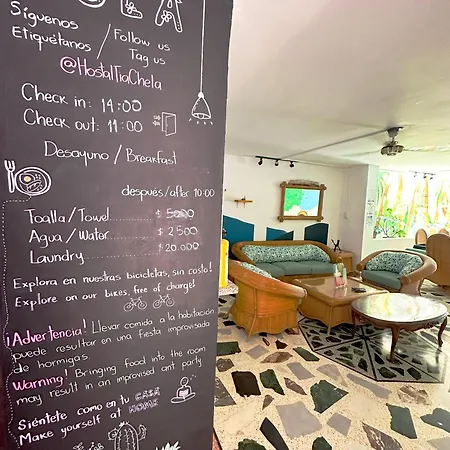 HOLA
Síguenos / Follow us
Etiquétanos / Tag us
@HostalTiaChela
Check in: 14:00
Check out: 11:00
Desayuno / Breakfast
después/after 10:00
Toalla / Towel.......... $ 5000
Agua / Water.......... $ 2.500
Laundry.......... $20.000
Explora en nuestras bicicletas, sin costo!
Explore on our bikes, free of charge!
¡Advertencia! Llevar comida a la habitación
puede resultar en una fiesta improvisada
de hormigas.
Warning! Bringing food into the room
may result in an improvised ant party
Siéntete como en tu CASA
Make yourself at HOME